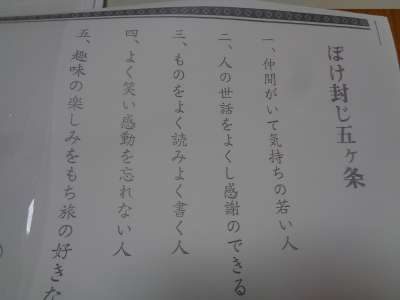 ぼけ封じ五ヶ条
一、仲間がいて気持ちの若い人
二、人の世話をよくし感謝のできる
三、ものをよく読みよく書く人
四、よく笑い感動を忘れない人
五、趣味の楽しみをもち旅の好きな